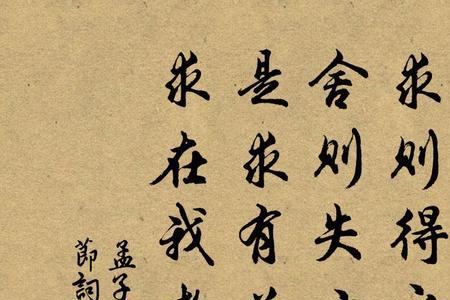 求则得
舍则失
是求有
求在我
孟子
节词